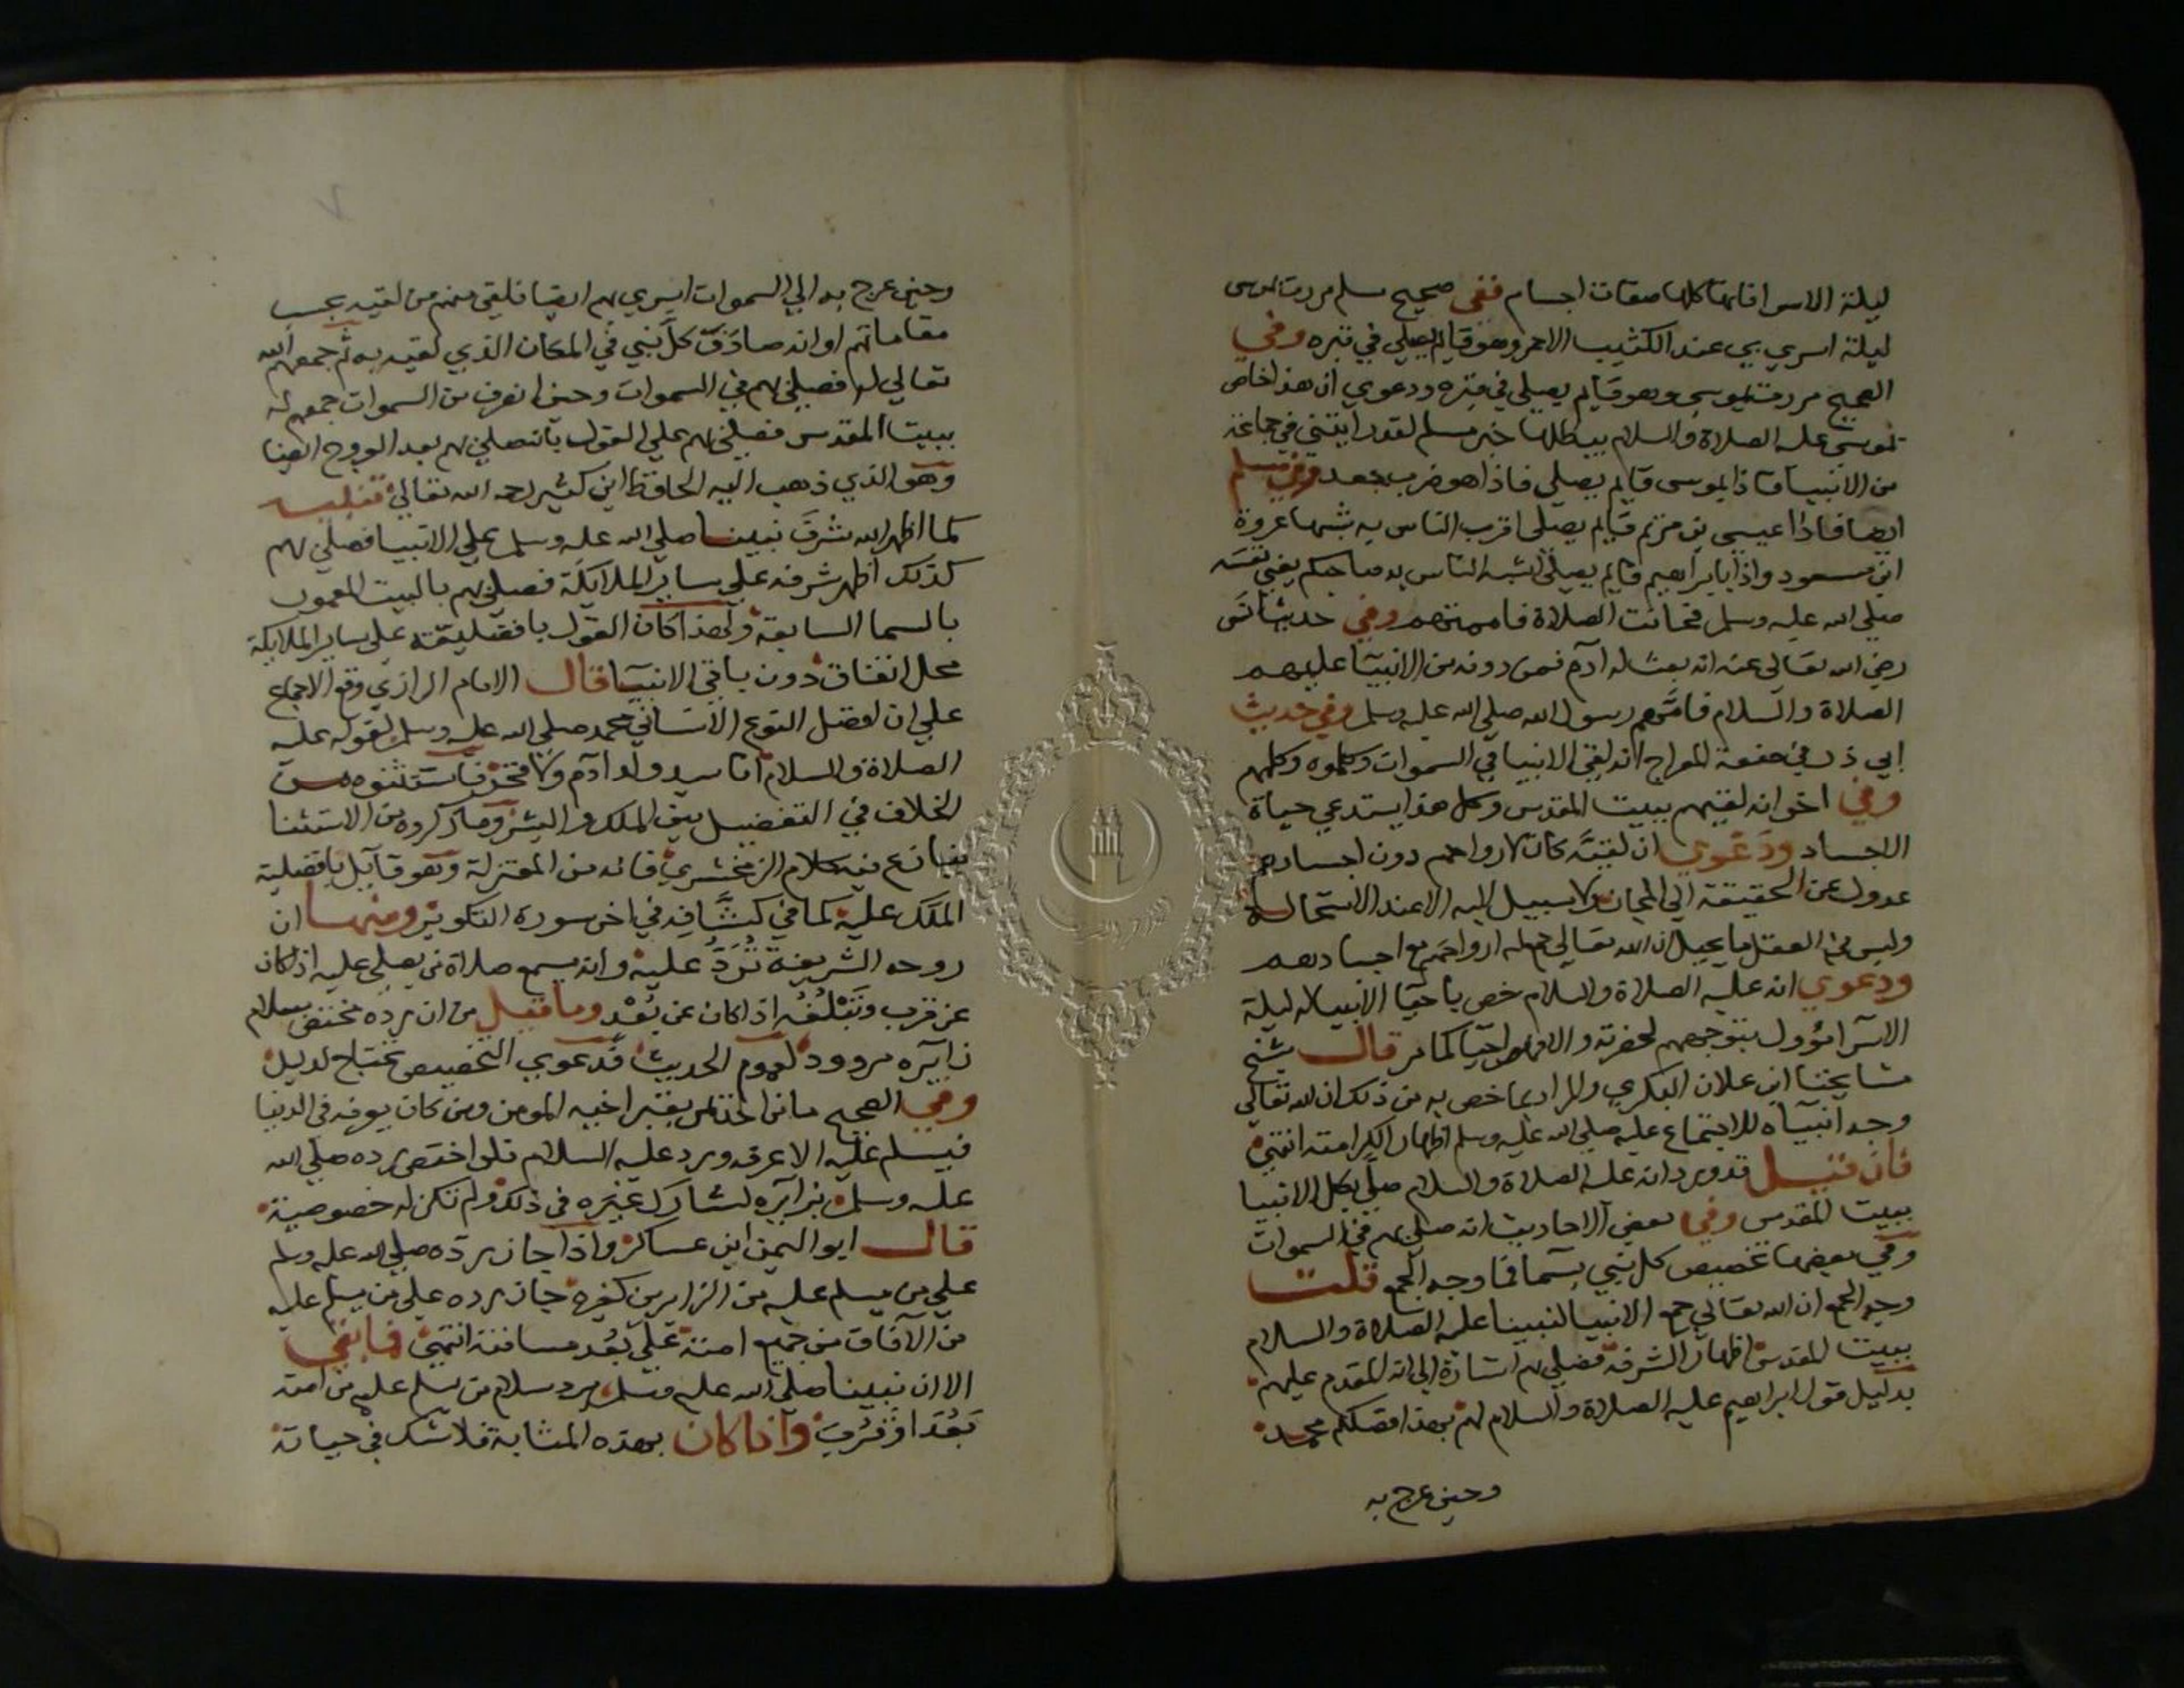 ليلة الاسرا فانها كلها صفات اجسام ففي صحيح مسلم مررت بموسى
ليلة اسري بي عند الكثيب الاحمر وهو قايم يصلي في قبره وفي
الصحيح مررت بموسى وهو قايم يصلي في قبره ودعوي ان هذا خاص
بموسى عليه الصلاة والسلام يبطلها خبر مسلم لقد رايتني في جماعة
من الانبيا فاذا بموسى قايم يصلي فاذا هو ضرب جعد وفي مسلم
ايضا فاذا عيسى بن مريم قايم يصلي اقرب الناس به شبها عروة
ابن مسعود واذا بابراهيم قايم يصلي اشبه الناس به صاحبكم يعني نفسه
صلى الله عليه وسلم فحانت الصلاة فاممتهم وفي حديث انس
رضي الله تعالى عنه انه بعث له آدم فمن دونه من الانبيا عليهم
الصلاة والسلام فامهم رسول الله صلى الله عليه وسلم وفي حديث
ابي ذر في صفة المعراج انه لقي الانبيا في السموات وكلموه وكلمهم
وفي اخر انه لقيهم ببيت المقدس وكل هذا يستدعي حياة
الاجساد ودعوي ان لقيه كان لارواحهم دون اجسادهم
عدول عن الحقيقة الي المجاز ولا سبيل اليه الا عند الاستحالة
وليس في العقل ما يحيل ان الله تعالى جمع له ارواحهم مع اجسادهم
ودعوي انه عليه الصلاة والسلام خص باحيا الانبيا له ليلة
الاسرا مؤول بتوجههم لحضرته والا فهم احيا كما مر قال شيخ
مشايخنا ابن علان البكري والمراد بما خص به من ذلك ان الله تعالى
وجه انبياه للاجتماع عليه صلى الله عليه وسلم اظهار الكرامته انتهى
فان قيل قد ورد انه عليه الصلاة والسلام صلى بكل الانبيا
ببيت المقدس وفي بعض الاحاديث انه صلى بهم في السموات
وفي بعضها تخصيص كل نبي بسما فما وجه الجمع قلت
وجه الجمع ان الله تعالى جمع الانبيا لنبينا عليه الصلاة والسلام
ببيت المقدس اظهار الشرفه فصلى بهم اشارة الى انه المقدم عليهم
بدليل قول ابراهيم عليه الصلاة والسلام لهم بهذا فضلكم محمد
وحين عرج به
وحين عرج به الى السموات اسري بهم ايضا فلقي منهم من لقيه بحسب
مقاماتهم او انه صادف كل نبي في المكان الذي لقيه به ثم جمعهم الله
تعالى له فصلى بهم في السموات وحين انصرف من السموات جمعهم له
ببيت المقدس فصلى بهم على القول بانه صلى بهم بعد العروج ايضا
وهو الذي ذهب اليه الحافظ ابن كثير رحمه الله تعالى تنبيه
كما اظهر الله شرف نبينا صلى الله عليه وسلم على الانبيا فصلى بهم
كذلك اظهر شرفه على ساير الملايكة فصلى بهم بالبيت المعمور
بالسما السابعة ولهذا كان القول بافضليته على ساير الملايكة
محل اتفاق دون باقي الانبيا قال الامام الرازي وقع الاجماع
علي ان افضل النوع الانساني محمد صلى الله عليه وسلم لقوله عليه
الصلاة والسلام انا سيد ولد آدم ولا فخر فاستثنوه من
الخلاف في التفضيل بين الملك والبشر وما ذكروه من الاستثنا
نازع فيه كلام الزمخشري فانه من المعتزلة وهو قايل بافضلية
الملك عليه كما في كشافه في اخر سورة التكوير ومنها ان
روحه الشريفة تُرَدُّ عليه وانه يسمع صلاة من يصلي عليه اذا كان
عن قرب وتبلغه اذا كان عن بُعْد وما قيل من ان رده مختص بسلام
زايره مردود لعموم الحديث فدعوي التخصيص تحتاج لدليل
وفي الصحيح ما من احد يمر بقبر اخيه المومن ومن كان يعرفه في الدنيا
فيسلم عليه الا عرفه ورد عليه السلام فلو اختص رده صلى الله
عليه وسلم بزايره لشارك غيره في ذلك ولم تكن له خصوصية
قال ابو اليمن ابن عساكر واذا جاز رده صلى الله عليه وسلم
على من يسلم عليه من الزايرين كغيره جاز رده على من يسلم عليه
من الآفاق من جميع امته على بُعد مسافته انتهى فما بقي
الا ان نبينا صلى الله عليه وسلم يرد سلام من يسلم عليه من امته
بَعُدَ او قَرُبَ واذا كان بهذه المثابة فلا شك في حياته